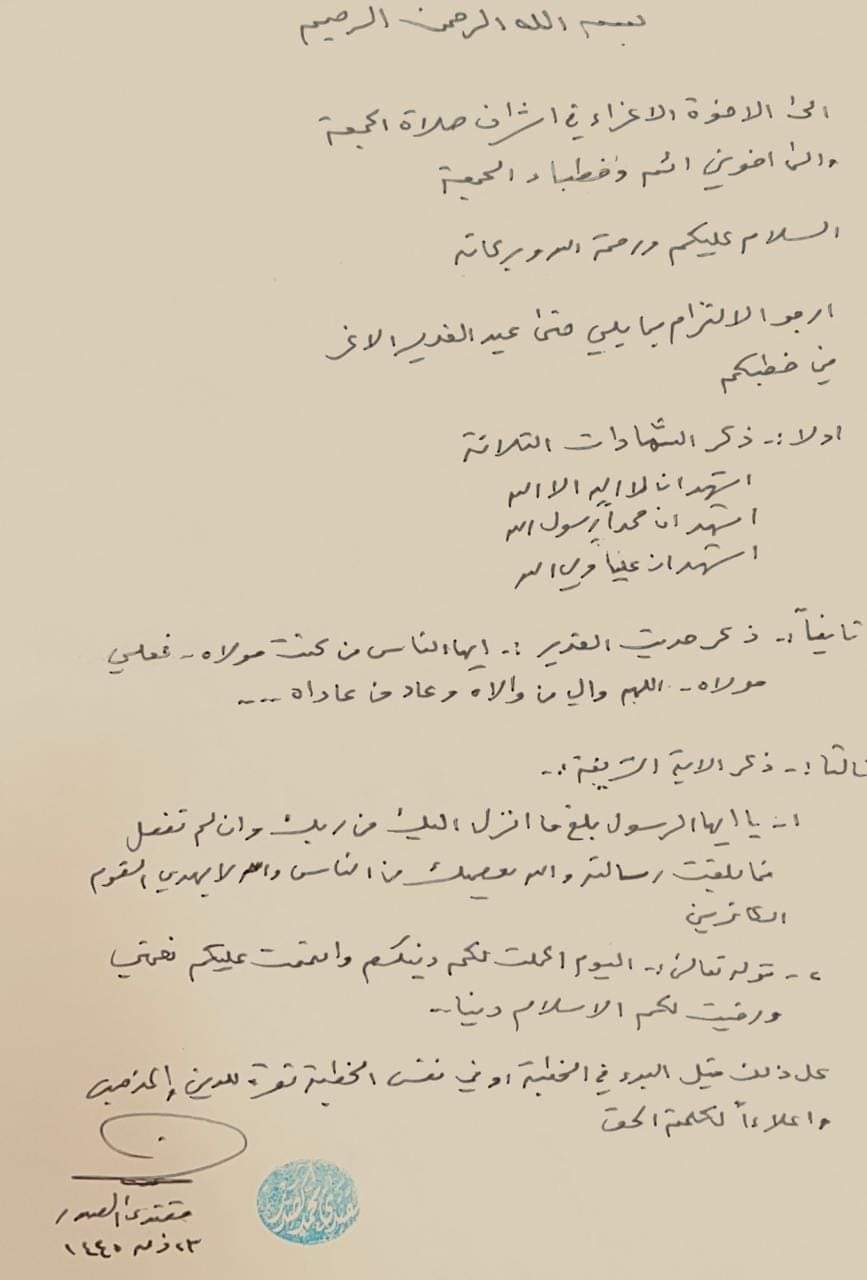 بسم الله الرحمن الرحيم
الى الاخوة الاعزاء في اشراف صلاة الجمعة
والى اخوتي ائمة وخطباء الجمعة
السلام عليكم ورحمة الله وبركاته
ارجو الالتزام بما يلي حتى عيد الغدير الاغر
في خطبكم
اولا :- ذكر الشهادات الثلاثة
اشهد ان لا اله الا الله
اشهد ان محمداً رسول الله
اشهد ان علياً ولي الله
ثانياً :- ذكر حديث الغدير :- ايها الناس من كنت مولاه - فعلي
مولاه - اللهم والي من والاه وعاد من عاداه ...
ثالثا :- ذكر الاية الشريفة :-
١- يا ايها الرسول بلغ ما انزل اليك من ربك وان لم تفعل
فما بلغت رسالته والله يعصمك من الناس والله لا يهدي القوم
الكافرين
٢- قوله تعالى :- اليوم اكملت لكم دينكم واتممت عليكم نعمتي
ورضيت لكم الاسلام دينا ..
كل ذلك قبل البدء في الخطبة او في نفس الخطبة نصرة للدين والمذهب
واعلاءاً لكلمة الحق
مقتدى الصدر
١٤٤٥